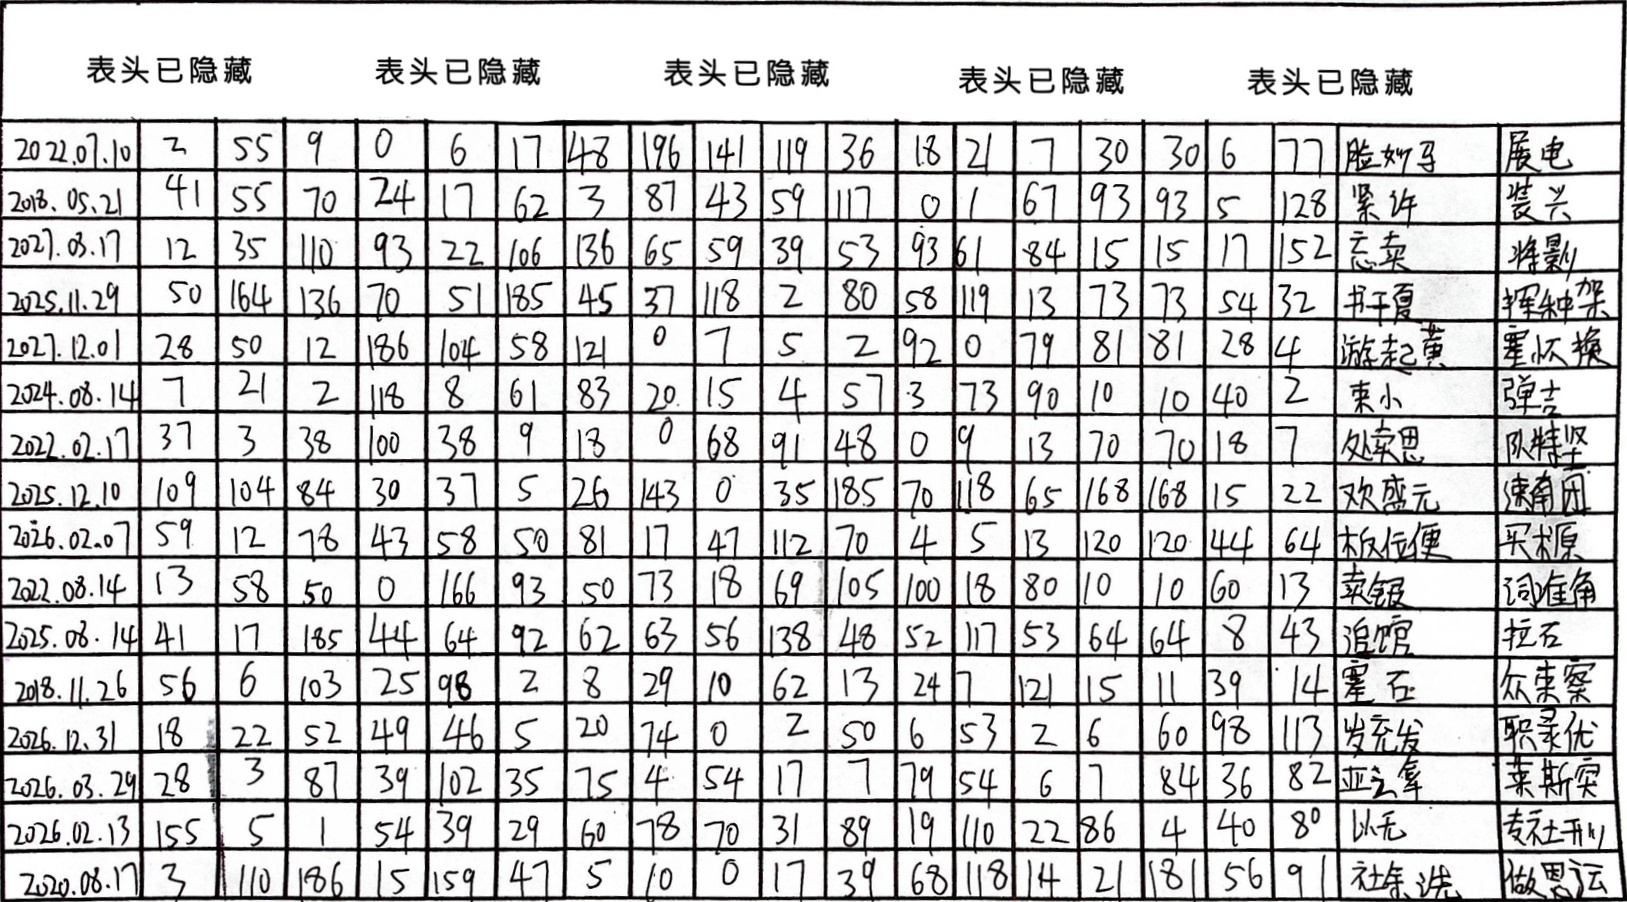 表头已隐藏 表头已隐藏 表头已隐藏 表头已隐藏 表头已隐藏
2022.07.10 2 55 9 0 6 17 48 196 141 119 36 18 21 7 30 30 6 77 脸妙马 展电
2018.05.21 41 55 70 24 17 62 3 87 43 59 117 0 1 67 93 93 5 128 紧许 装兴
2027.03.17 12 35 110 93 22 106 136 65 59 39 53 93 61 84 15 15 17 152 忘卖 将影
2025.11.29 50 164 136 70 51 185 45 37 118 2 80 58 119 13 73 73 54 32 书干夏 挥种架
2027.12.01 28 50 12 186 104 58 121 0 7 5 2 92 0 79 81 81 28 4 游起黄 星怀换
2024.08.14 7 21 2 118 8 61 83 20 15 4 57 3 73 90 10 10 40 2 束小 弹吉
2022.02.17 37 3 38 100 38 9 18 0 68 91 48 0 9 13 70 70 18 7 处卖思 队特坚
2025.12.10 109 104 84 30 37 5 26 143 0 35 185 70 118 65 168 168 15 22 欢盛元 速南团
2026.02.07 59 12 78 43 58 50 81 17 47 112 70 4 5 13 120 120 44 64 板位便 买木原
2022.08.14 13 58 50 0 166 93 50 73 18 69 105 100 18 80 10 10 60 13 卖银 词准角
2025.08.14 41 17 185 44 64 92 62 63 56 138 48 52 117 53 64 64 8 43 追馆 拉石
2018.11.26 56 6 103 25 98 2 8 29 10 62 13 24 7 121 15 11 39 14 石 众束察
2026.12.31 18 22 52 49 46 5 20 74 0 2 50 6 53 2 6 60 98 113 岁充发 职录优
2026.03.29 28 3 87 39 102 35 75 4 54 17 7 79 54 6 7 84 36 82 亚之拿 莱斯突
2026.02.13 155 5 1 54 39 29 60 78 70 31 89 19 110 22 86 4 40 80 以无 专社刑
2020.08.17 3 110 186 15 159 47 5 10 0 17 39 68 118 14 21 181 56 91 社余选 做思运